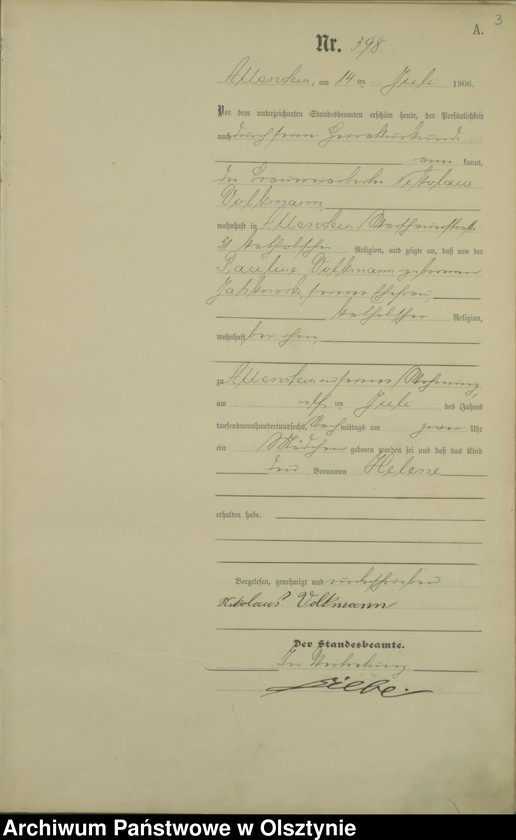 3
A.
Nr. 398.
Allenstein, am 14 ten Juli 1906.
Vor dem unterzeichneten Standesbeamten erschien heute, der Persönlichkeit
nach durch seine
kannt,
der Nikolaus
Volkmann
wohnhaft in Allenstein,
31 katholischer Religion, und zeigte an, daß von der
Pauline Volkmann geborenen
seiner Ehefrau,
katholischer Religion,
wohnhaft bei ihm,
zu Allenstein in seiner Wohnung,
am elften Juli des Jahres
tausendneunhundertundsechs, Nachmittags um zwei Uhr
ein Mädchen geboren worden sei und daß das Kind
den Vornamen Helene
erhalten habe.
Vorgelesen, genehmigt und unterschrieben
Nikolaus Volkmann
Der Standesbeamte.
In Vertretung
Archiwum Państwowe w Olsztynie